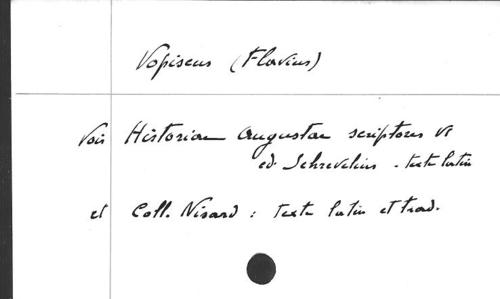 Vopiscus (Flavius)
Voir Historiae Augustae scriptores VI
ed. Schrevelius - texte latin
et Coll. Nisard : texte latin et trad.